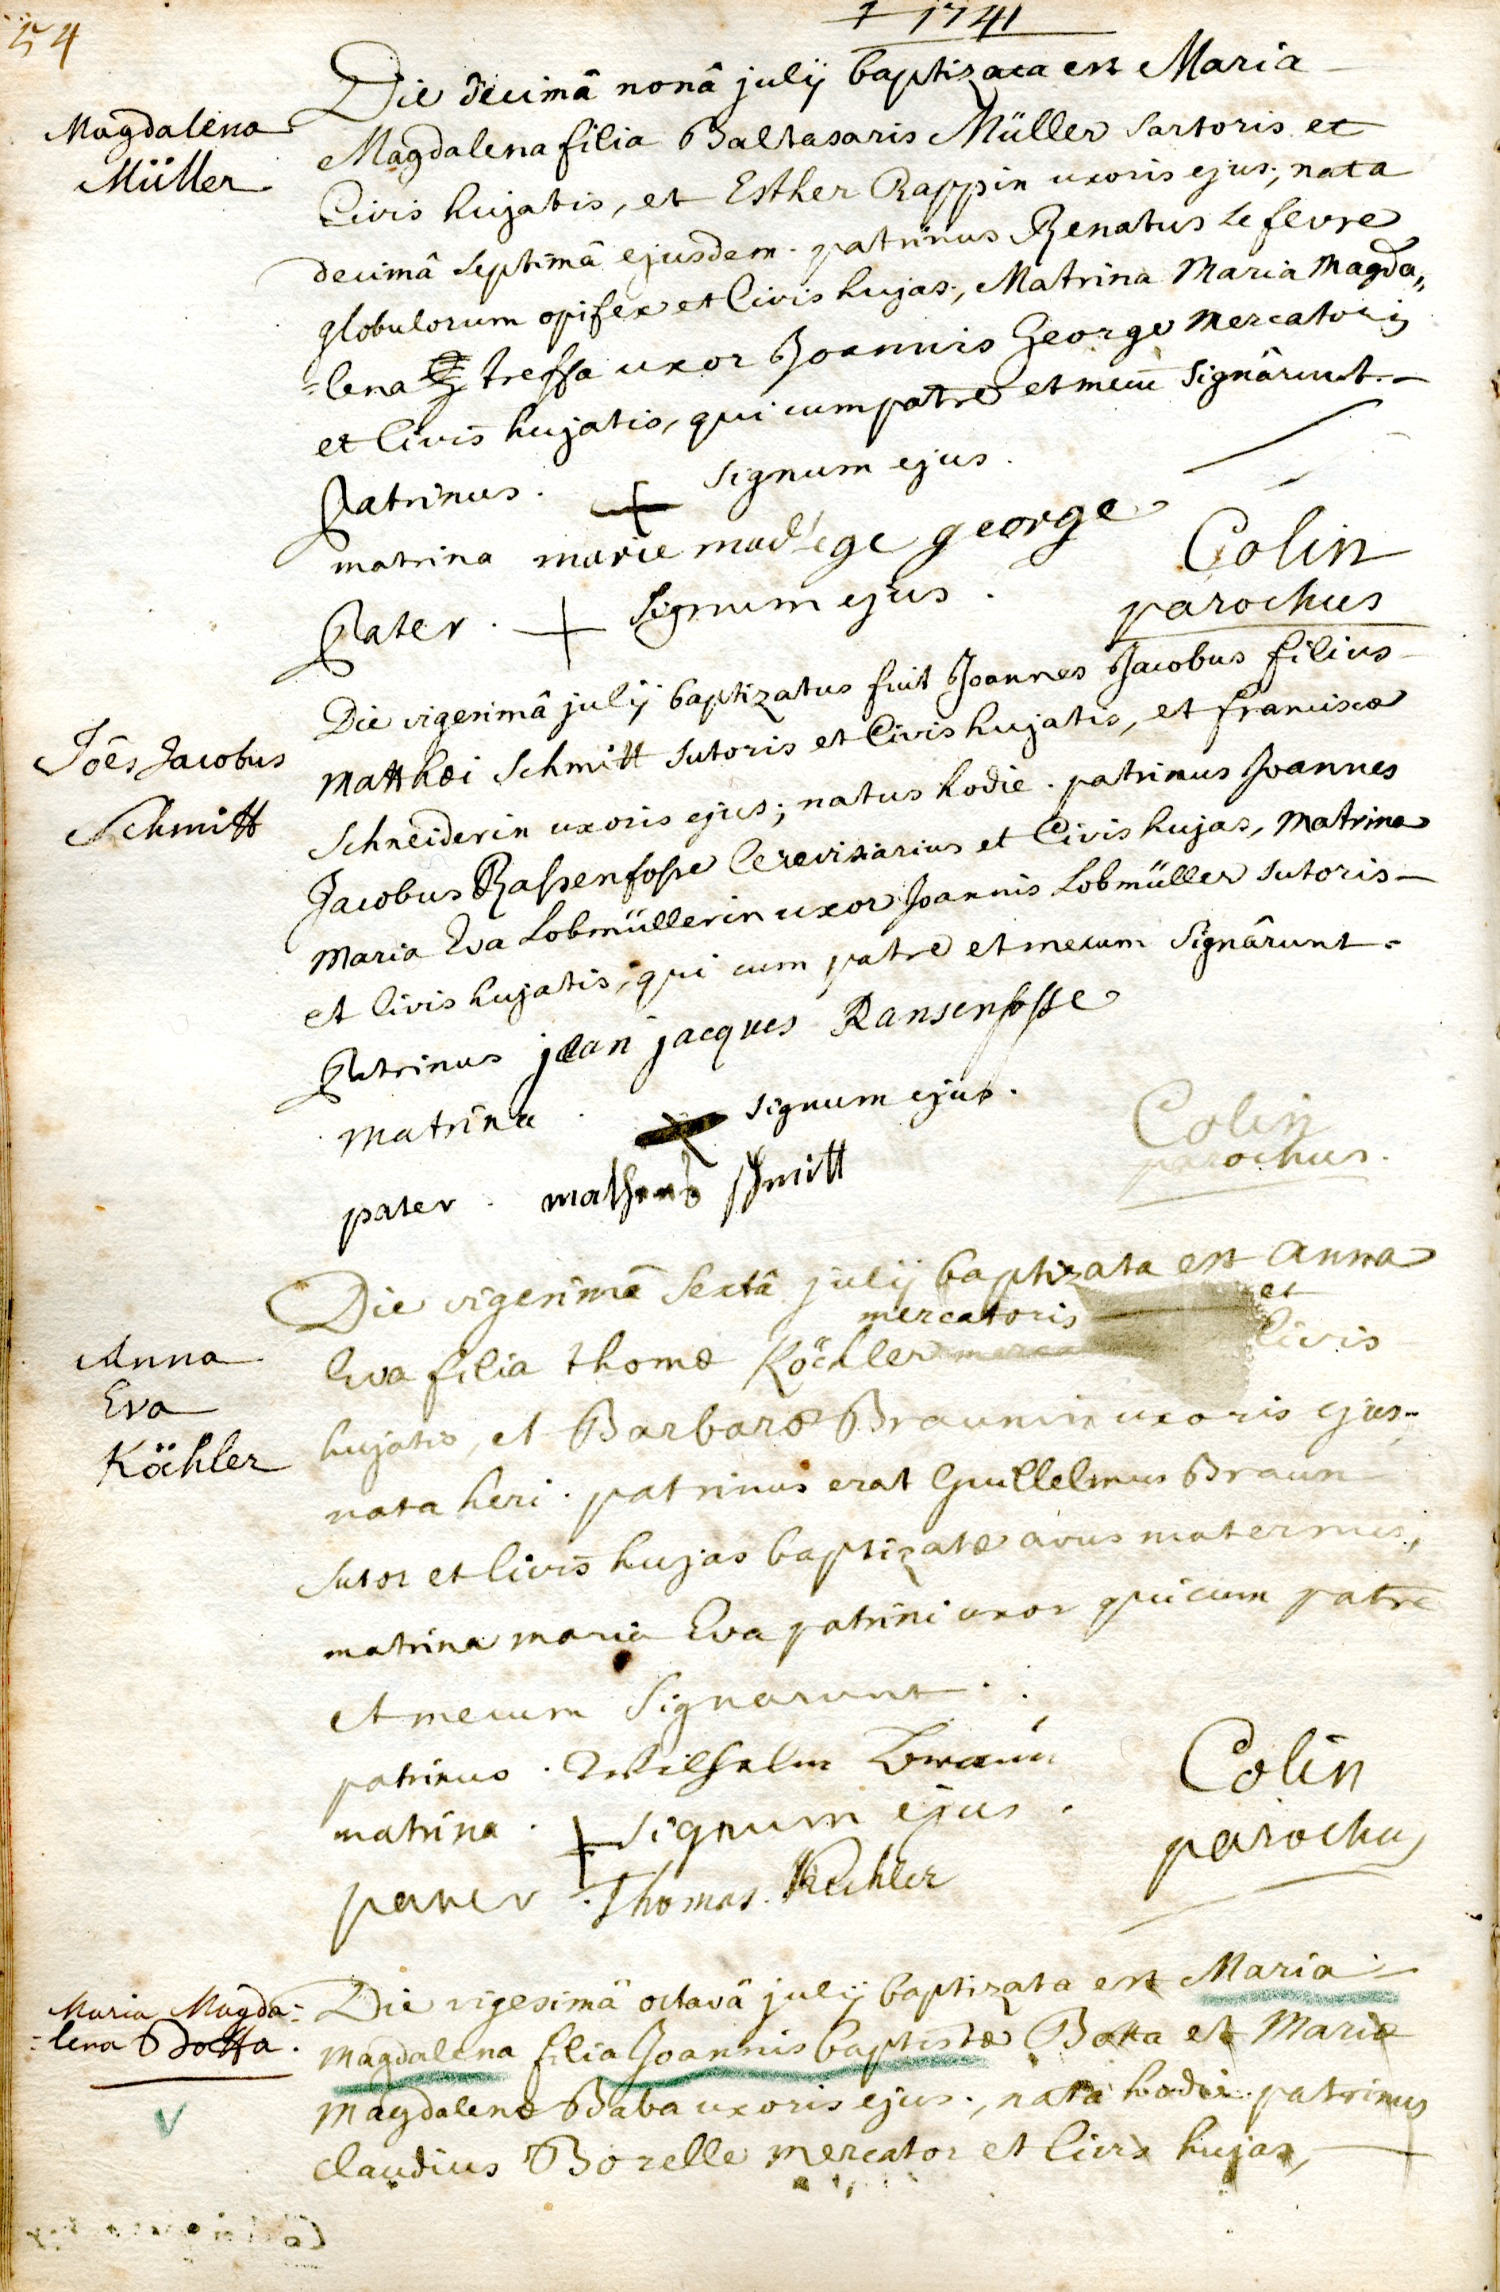 54
1741
Die decimâ nonâ julÿ baptizata est Maria
Magdalena
Müller
Magdalena filia Baltasaris Müller Sartoris et
Civis hujatis, et Esther Rappin uxoris ejus; nata
decimâ Septimâ ejusdem. patrinus Renatus Le fevre
globulorum opifex et Civis hujas, Matrina Maria Magda„
=lena treffa uxor Joannis George Mercatoris
et Civis hujatis, qui cum patre et mecū Signârunt.
Patrinus. + Signum ejus.
matrina marie mad george
Colin
parochus
Pater. + Signum ejus.
Joês Jacobus
Schmitt
Die vigesimâ julÿ baptizatus fuit Joannes Jacobus filius
Matthæi Schmitt Sutoris et Civis hujatis, et franciscæ
Schneiderin uxoris ejus; natus hodie. patrinus Joannes
Jacobus Rassenfosse Cerevisiarius et Civis hujas, Matrina
Maria Eva Lobmüllerin uxor Joannis Lobmüller Sutoris
et Civis hujatis, qui cum patre et mecum Signârunt.
Patrinus jean jacques Ransenfosse
Matrina Signum ejus.
Colin
parochus.
pater. schmitt
Anna
Eva
Köchler
Die vigesimâ Sextâ julÿ baptizata est Anna
mercatoris et
Eva filia thomæ Köchler Civis
hujatis, et Barbaræ Braunin uxoris ejus.
nata heri. patrinus erat Guillelmus Braun
Sutor et Civis hujas baptizatæ avus maternus,
matrina maria Eva patrini uxor qui cum patre
et mecum Signarunt.
patrinus. Wilhelm Braun
matrina. + Signum ejus.
Colin
parochus
pater. Thomas Kechler
Maria Magda=
=lena Botta.
Die vigesimâ octavâ julÿ baptizata est Maria
Magdalena filia Joannis baptistæ Botta et Mariæ
Magdalenæ Baba uxoris ejus., nata hodie. patrinus
Claudius Borelle Mercator et Civis hujas,